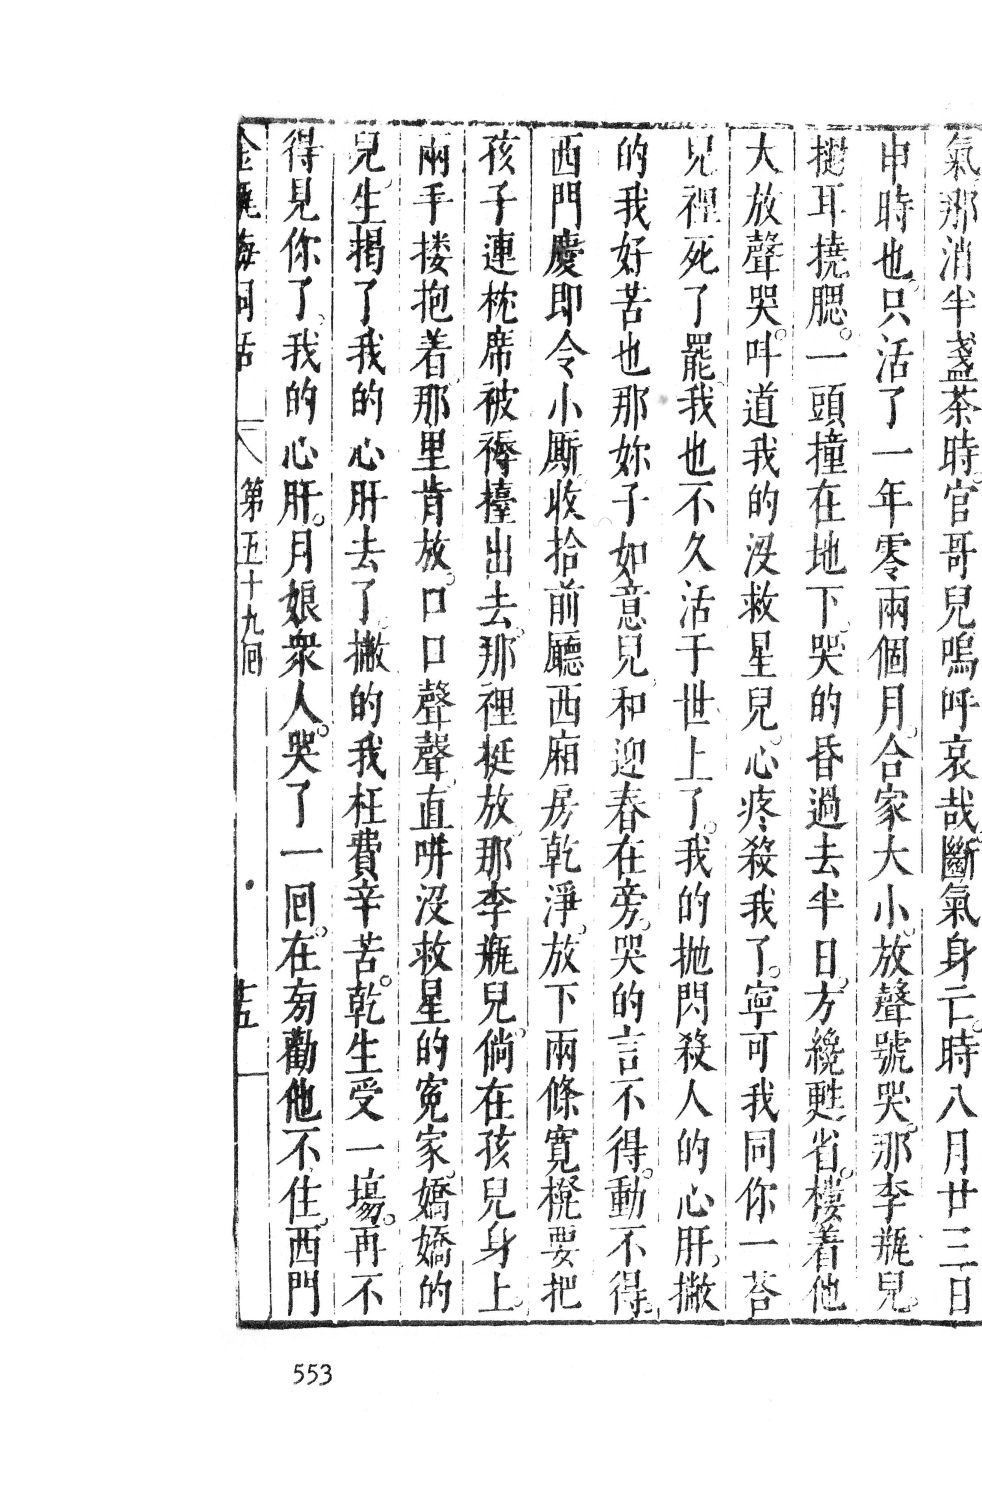 氣那消半盞茶時官哥兒嗚呼哀哉斷氣身亡時八月廿三日
申時也只活了一年零兩個月合家大小放聲號哭那李瓶兒
撾耳撓腮一頭撞在地下哭的昏過去半日方纔甦省摟着他
大放聲哭叫道我的没救星兒心疼殺我了寧可我同你一荅
兒裡死了罷我也不久活于世上了我的抛閃殺人的心肝撇
的我好苦也那妳子如意兒和迎春在旁哭的言不得動不得
西門慶即令小厮收拾前廳西廂房乾淨放下兩條寬櫈要把
孩子連枕席被褥擡出去那裡挺放那李瓶兒倘在孩兒身上
兩手摟抱着那里肯放口口聲聲直呌没救星的寃家嬌嬌的
兒生揭了我的心肝去了撇的我枉費辛苦乾生受一塲再不
得見你了我的心肝月娘衆人哭了一回在旁勸他不住西門
金瓶梅詞話 第五十九囘 十五
553